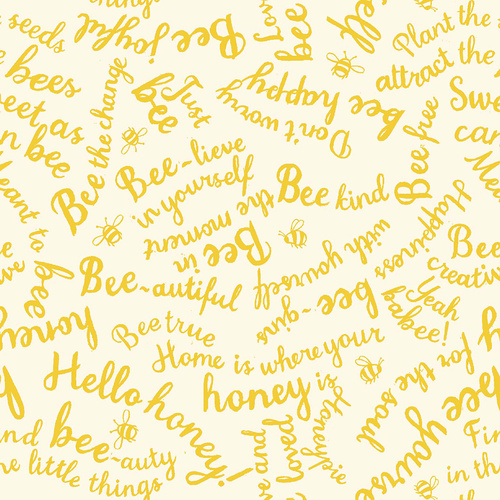 things
Bee joyful
seeds
bees
Bee the change
Just
bee
Don't worry
bee happy
Plant the
attract the
Bee free
eet as
n bee
eant to
bee
Bee-lieve
in yourself
Bee in
the moment
Bee kind
Happiness
bee-gins
with yourself
Bee
Yeah
babee!
Bee-autiful
honey
Bee true
Home is where your
honey is
Hello honey!
Honey is
for the soul
bee-auty
little things
and
loved
Bee
in the